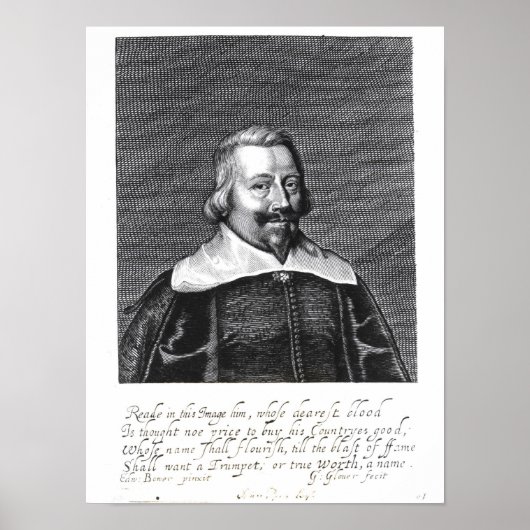 Reade in this Image him, whose dearest blood
Is thought noe price to buy his Countryes good,
Whose name shall flourish, till the blast of ffame
Shall want a Trumpet, or true Worth, a name.
Edw: Bower pinxit G: Glover fecit